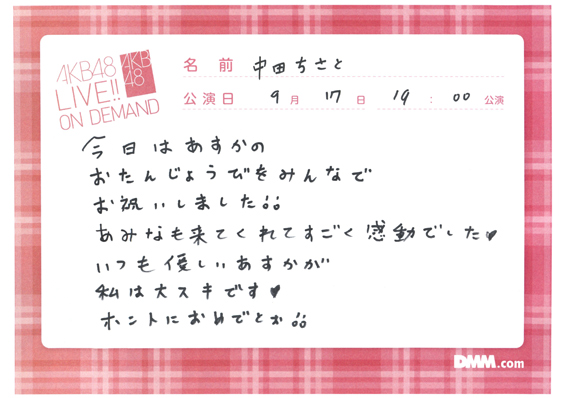 AKB48
LIVE!!
ON DEMAND
AKB
48
名 前 中田ちさと
公演日 9 月 17 日 19 : 00 公演
今日はあすかの
おたんじょうびをみんなで
お祝いしました!!
あみなも来てくれてすごく感動でした♥
いつも優しいあすかが
私は大スキです♥
ホントにおめでとお!!
DMM.com